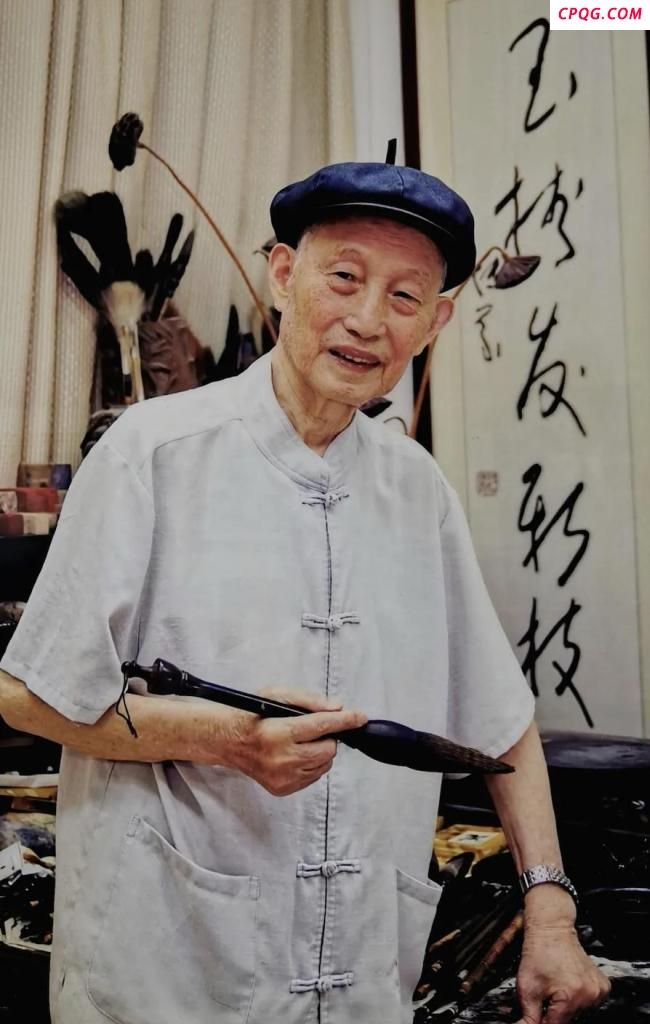 CPQG.COM
玉樹发新枝